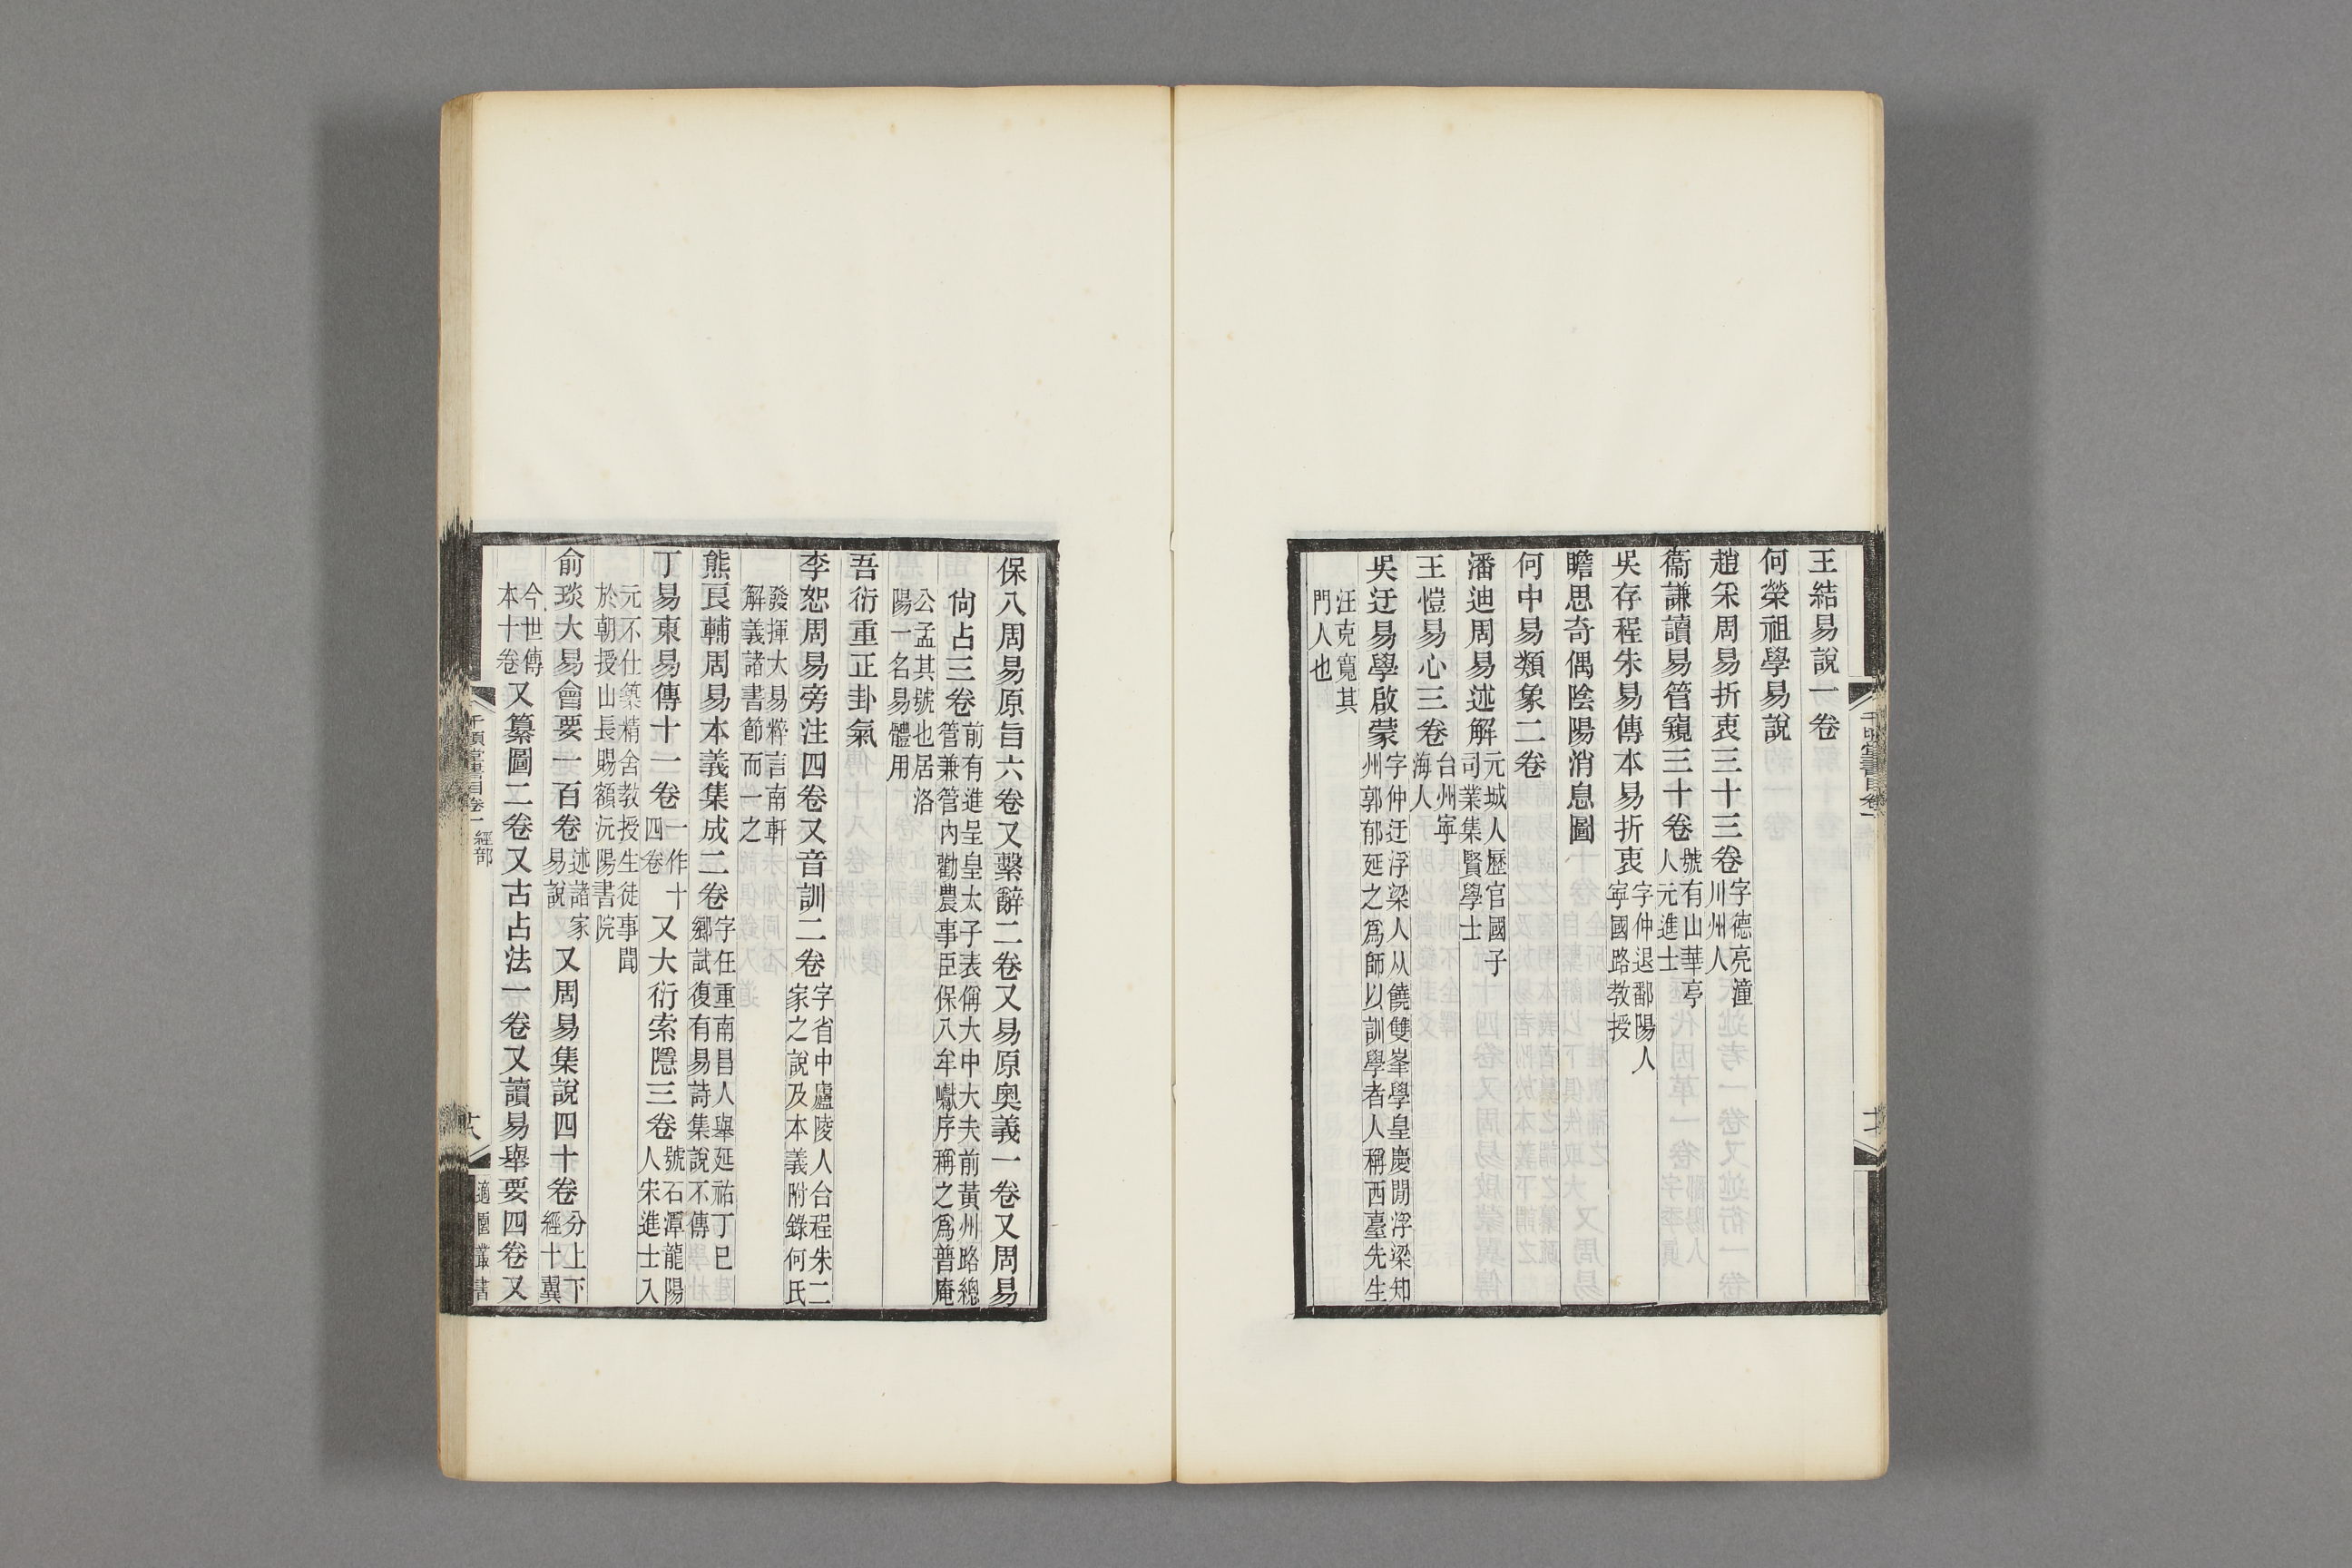 王結易說一卷
何榮祖學易說
趙采周易折衷三十三卷字德亮潼
川州人
衞謙讀易管窺三十卷號有山華亭
人元進士
吳存程朱易傳本易折衷字仲退鄱陽人
寧國路教授
瞻思奇偶陰陽消息圖
何中易類象二卷
潘迪周易述解元城人歷官國子
司業集賢學士
王愷易心三卷台州寧
海人
吳迂易學啟蒙字仲迂浮梁人从饒雙峯學皇慶閒浮梁知
州郭郁延之爲師以訓學者人稱西臺先生
汪克寬其
門人也
保八周易原旨六卷又繫辭二卷又易原奥義一卷又周易
尙占三卷前有進呈皇太子表偁大中大夫前黃州路總
管兼管內勸農事臣保八牟巘序稱之爲普庵
公孟其號也居洛
陽一名易體用
吾衍重正卦氣
李恕周易旁注四卷又音訓二卷字省中廬陵人合程朱二
家之說及本義附錄何氏
發揮大易粹言南軒
解義諸書節而一之
熊良輔周易本義集成二卷字任重南昌人舉延祐丁巳
鄉試復有易詩集說不傳
丁易東易傳十一卷一作十
四卷又大衍索隱三卷號石潭龍陽
人宋進士入
元不仕築精舍教授生徒事聞
於朝授山長賜額沅陽書院
俞琰大易會要一百卷述諸家
易說又周易集說四十卷分上下
經十翼
今世傳
本十卷又纂圖二卷又古占法一卷又讀易舉要四卷又
千頃堂書目卷一 經部
十八
適園叢書